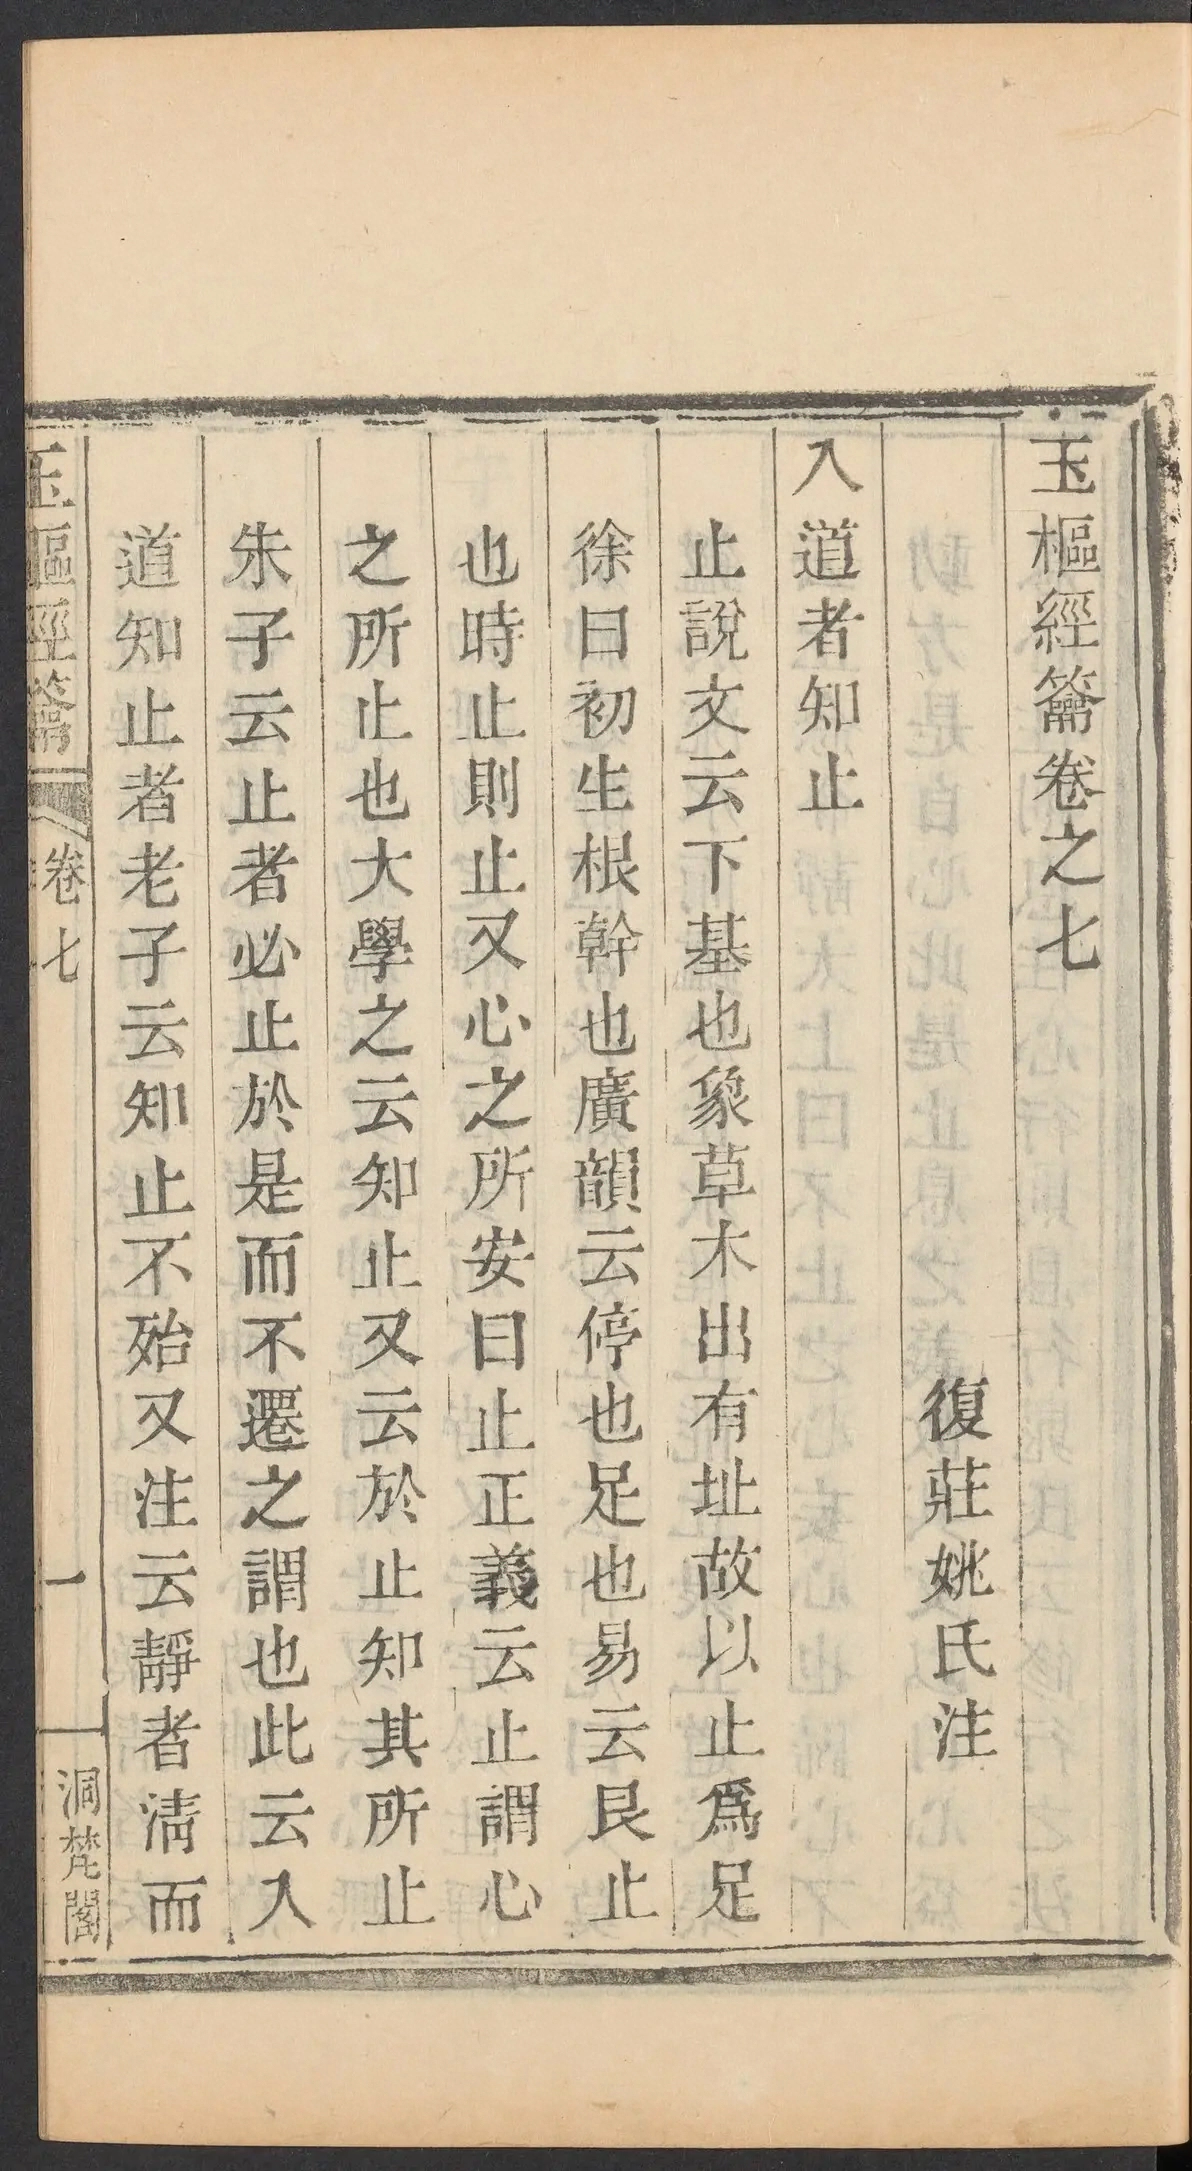 玉樞經籥卷之七
復莊姚氏注
入道者知止
止說文云下基也象草木出有址故以止爲足
徐曰初生根幹也廣韻云停也足也易云艮止
也時止則止又心之所安曰止正義云止謂心
之所止也大學之云知止又云於止知其所止
朱子云止者必止於是而不遷之謂也此云入
道知止者老子云知止不殆又注云靜者淸而
玉樞經籥 卷七 一 洞梵閣